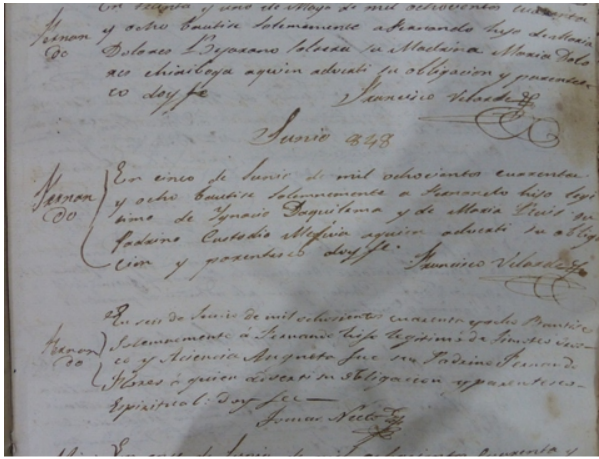 En treinta y uno de Mayo de mil ochocientos cuarenta
y ocho bautisé solemnemente a Fernando hijo de Maria
Dolores Bejarano soltera su Madrina Maria Dolo
res chiriboga a quien adverti su obligacion y parentes
co doy fe
Fernan
do
Francisco Velarde
Junio 848
Fernan
do
En cinco de Junio de mil ochocientos cuarenta
y ocho bautisé solemnemente a Fernando hijo legi
timo de Ignacio Daquilema y de Maria su
Padrino Custodio a quien adverti su obliga
cion y parentesco doy fe.
Francisco Velarde
Fernan
do
En seis de Junio de mil ochocientos cuarenta y ocho Bautisé
Solemnemente á Fernando hijo legitimo de
co y Acencia fue su Padrino Fernando
Flores á quien adverti su obligacion y parentesco
Espiritual: doy fee
En once de Junio de mil ochocientos cuarenta y